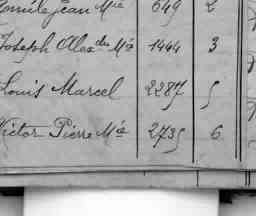 Emile Jean Mie 649 2
Joseph Alexdre Mie 1444 3
Louis Marcel 2287 5
Victor Pierre Mie 2735 6